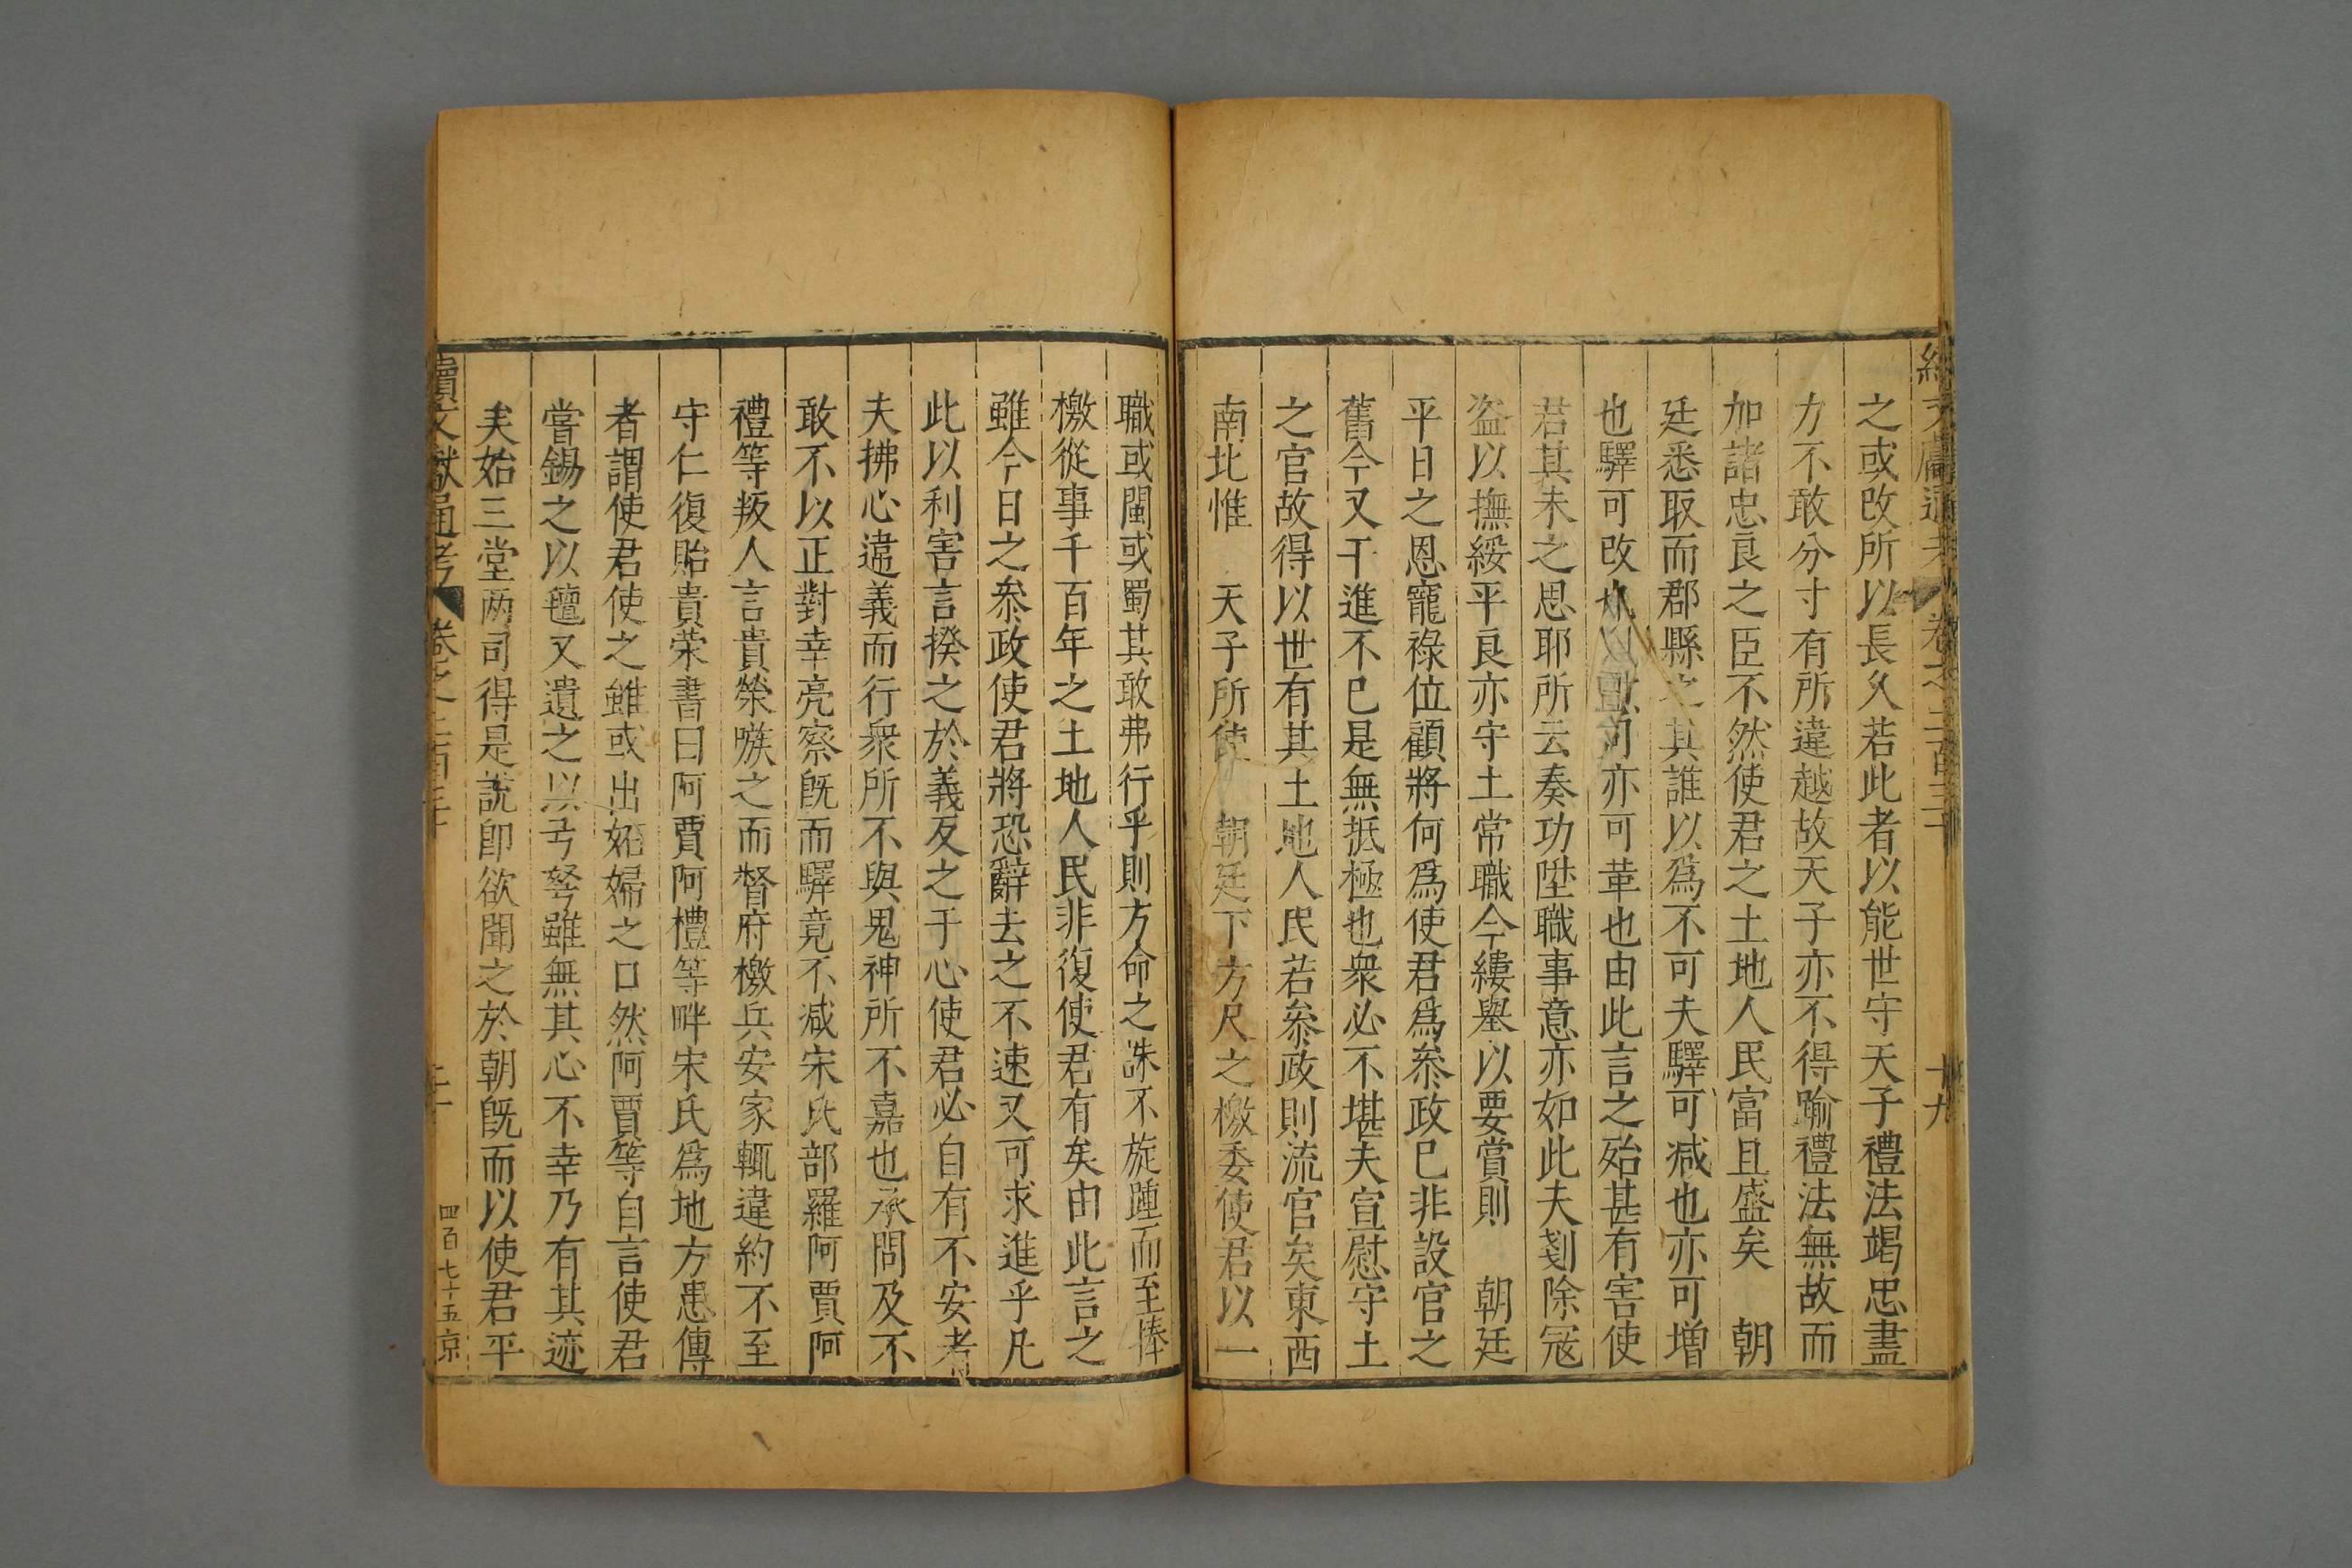 之或改所以長久若此者以能世守天子禮法竭忠盡
力不敢分寸有所違越故天子亦不得踰禮法無故而
加諸忠良之臣不然使君之土地人民富且盛矣　朝
廷悉取而郡縣之其誰以爲不可夫驛可减也亦可增
也驛可改亦可革也由此言之殆甚有害使
君其未之思耶所云奏功陞職事意亦如此夫剗除冦
盗以撫綏平良亦守土常職今縷舉以要賞則　朝廷
平日之恩寵祿位顧將何爲使君爲叅政已非設官之
舊今又干進不已是無抵極也衆必不堪夫宣慰守土
之官故得以世有其土地人民若叅政則流官矣東西
南北惟　天子所使　朝廷下方尺之檄委使君以一
職或閩或蜀其敢弗行乎則方命之誅不旋踵而至捧
檄從事千百年之土地人民非復使君有矣由此言之
雖今日之叅政使君將恐辭去之不速又可求進乎凡
此以利害言揆之於義反之于心使君必自有不安者
夫拂心違義而行衆所不與鬼神所不嘉也承問及不
敢不以正對幸亮察旣而驛竟不减宋氏部羅阿賈阿
禮等叛人言貴榮嗾之而督府檄兵安家輒違約不至
守仁復貽貴荣書曰阿賈阿禮等畔宋氏爲地方患傳
者謂使君使之雖或出妬婦之口然阿賈等自言使君
嘗錫之以氊又遺之以弓弩雖無其心不幸乃有其迹
矣始三堂两司得是說卽欲聞之於朝旣而以使君平
續文獻通考　卷之二百三十
四百七十五　京
十九